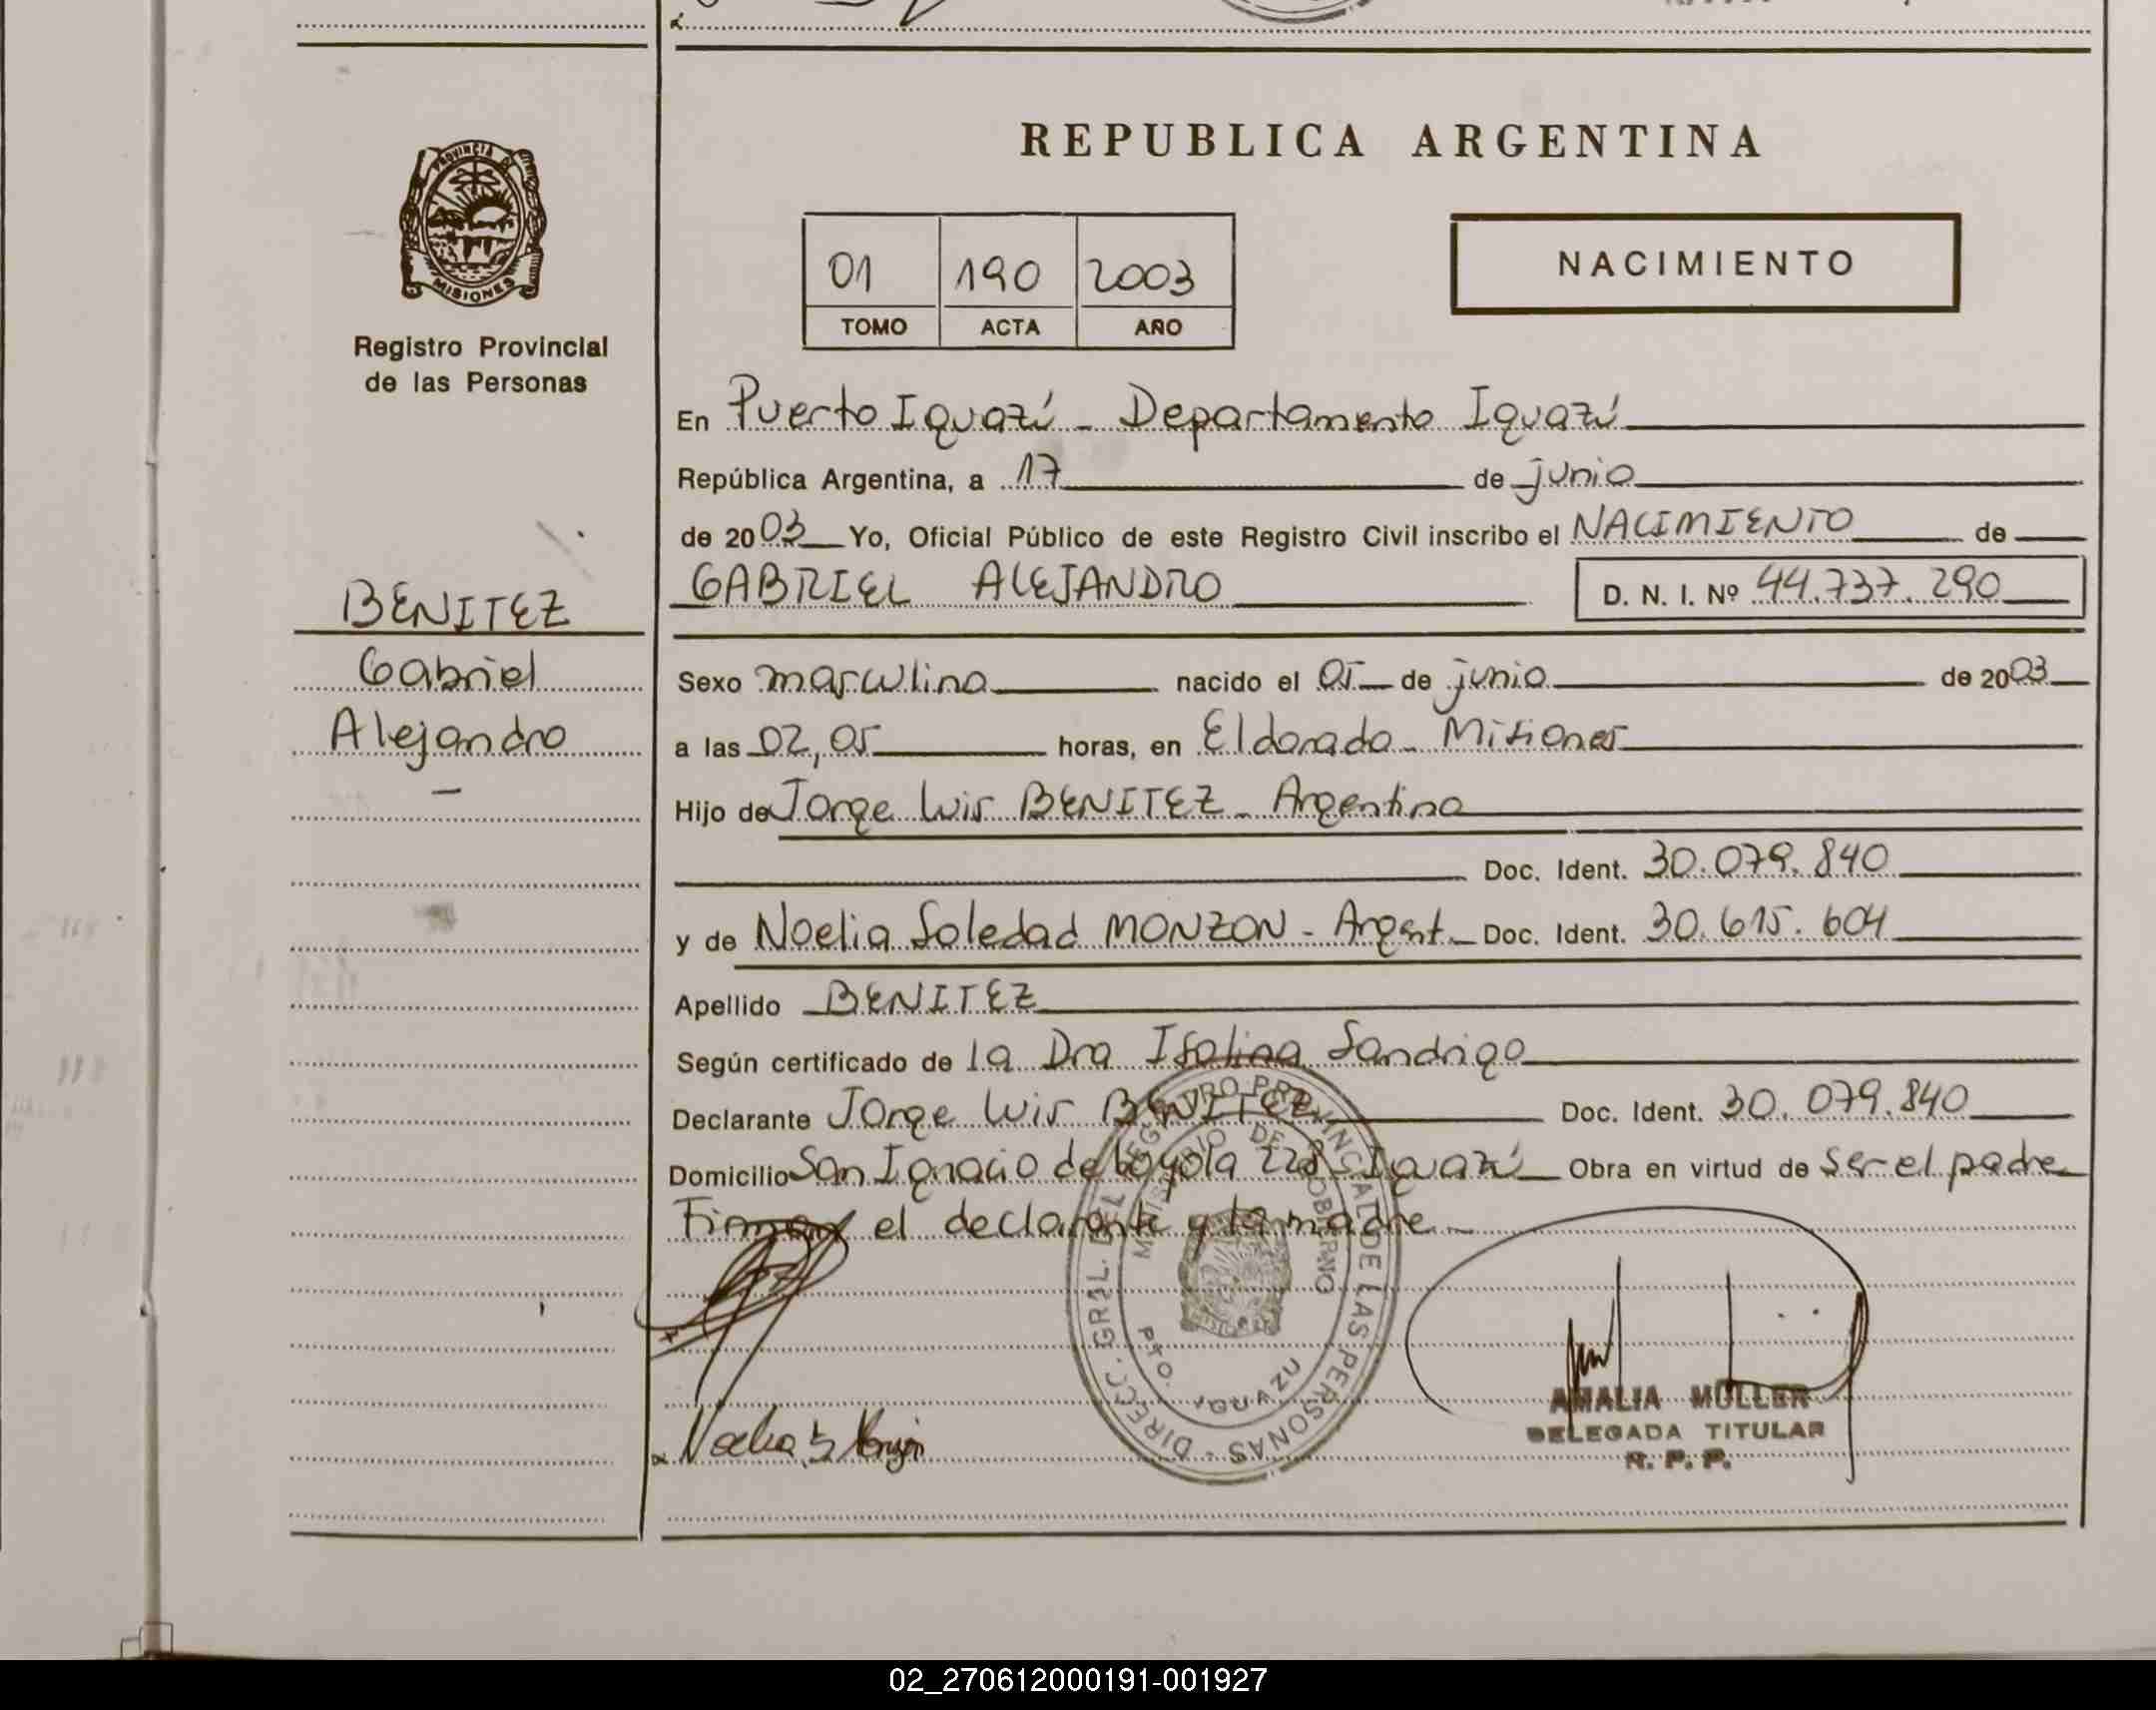 REPUBLICA ARGENTINA
PROVINCIA DE
MISIONES
Registro Provincial
de las Personas
01 190 2003
TOMO ACTA AÑO
NACIMIENTO
En Puerto Iguazú - Departamento Iguazú
República Argentina, a 17 de junio
de 2003 Yo, Oficial Público de este Registro Civil inscribo el NACIMIENTO de
GABRIEL ALEJANDRO D. N. I. Nº 44.737.290
BENITEZ
Gabriel
Alejandro
Sexo masculino nacido el 05 de junio de 2003
a las 02,05 horas, en Eldorado - Misiones
Hijo de Jorge Luis BENITEZ - Argentino
Doc. Ident. 30.079.840
y de Noelia Soledad MONZON - Argent. Doc. Ident. 30.615.604
Apellido BENITEZ
Según certificado de la Dra Isolina Sandrigo
Declarante Jorge Luis BENITEZ Doc. Ident. 30.079.840
Domicilio San Ignacio de Loyola - Iguazú Obra en virtud de Ser el padre
Firman el declarante y la madre -
DIRECC. GRAL. DEL REGISTRO PROVINCIAL DE LAS PERSONAS
MINISTERIO DE GOBIERNO
PTO. IGUAZU
Noelia S Monzón
AMALIA MÜLLER
DELEGADA TITULAR
R. P. P.
02_270612000191-001927